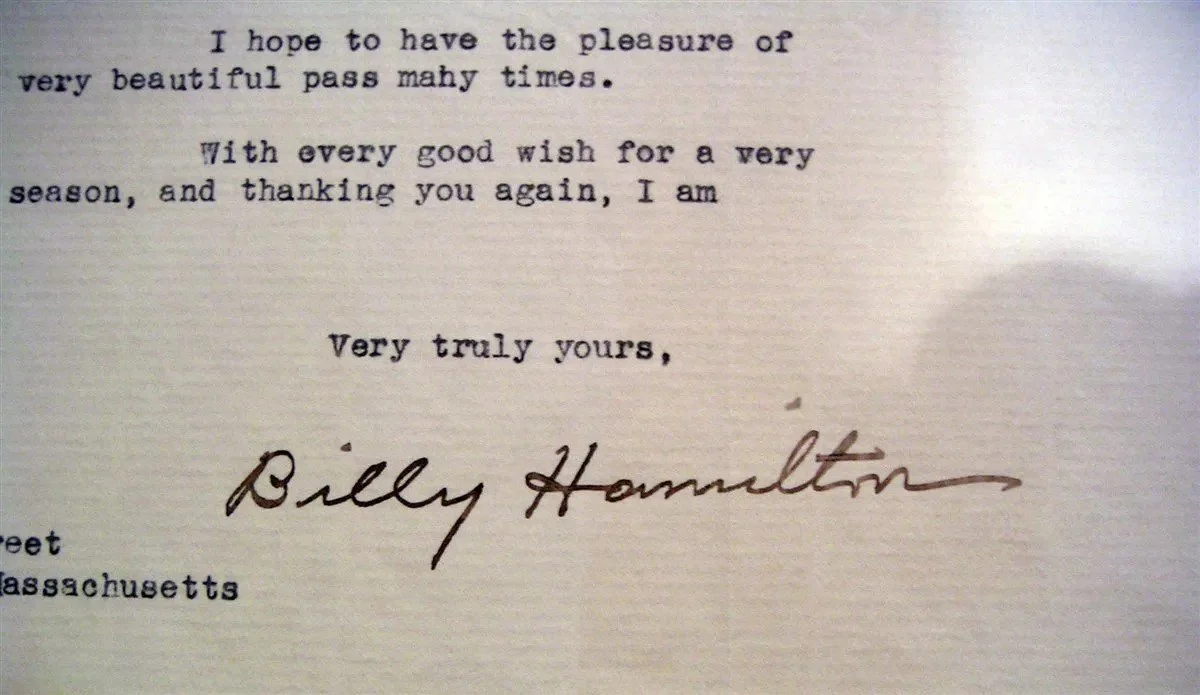 I hope to have the pleasure of
very beautiful pass mahy times.
With every good wish for a very
season, and thanking you again, I am
Very truly yours,
Billy Hamilton
reet
Massachusetts